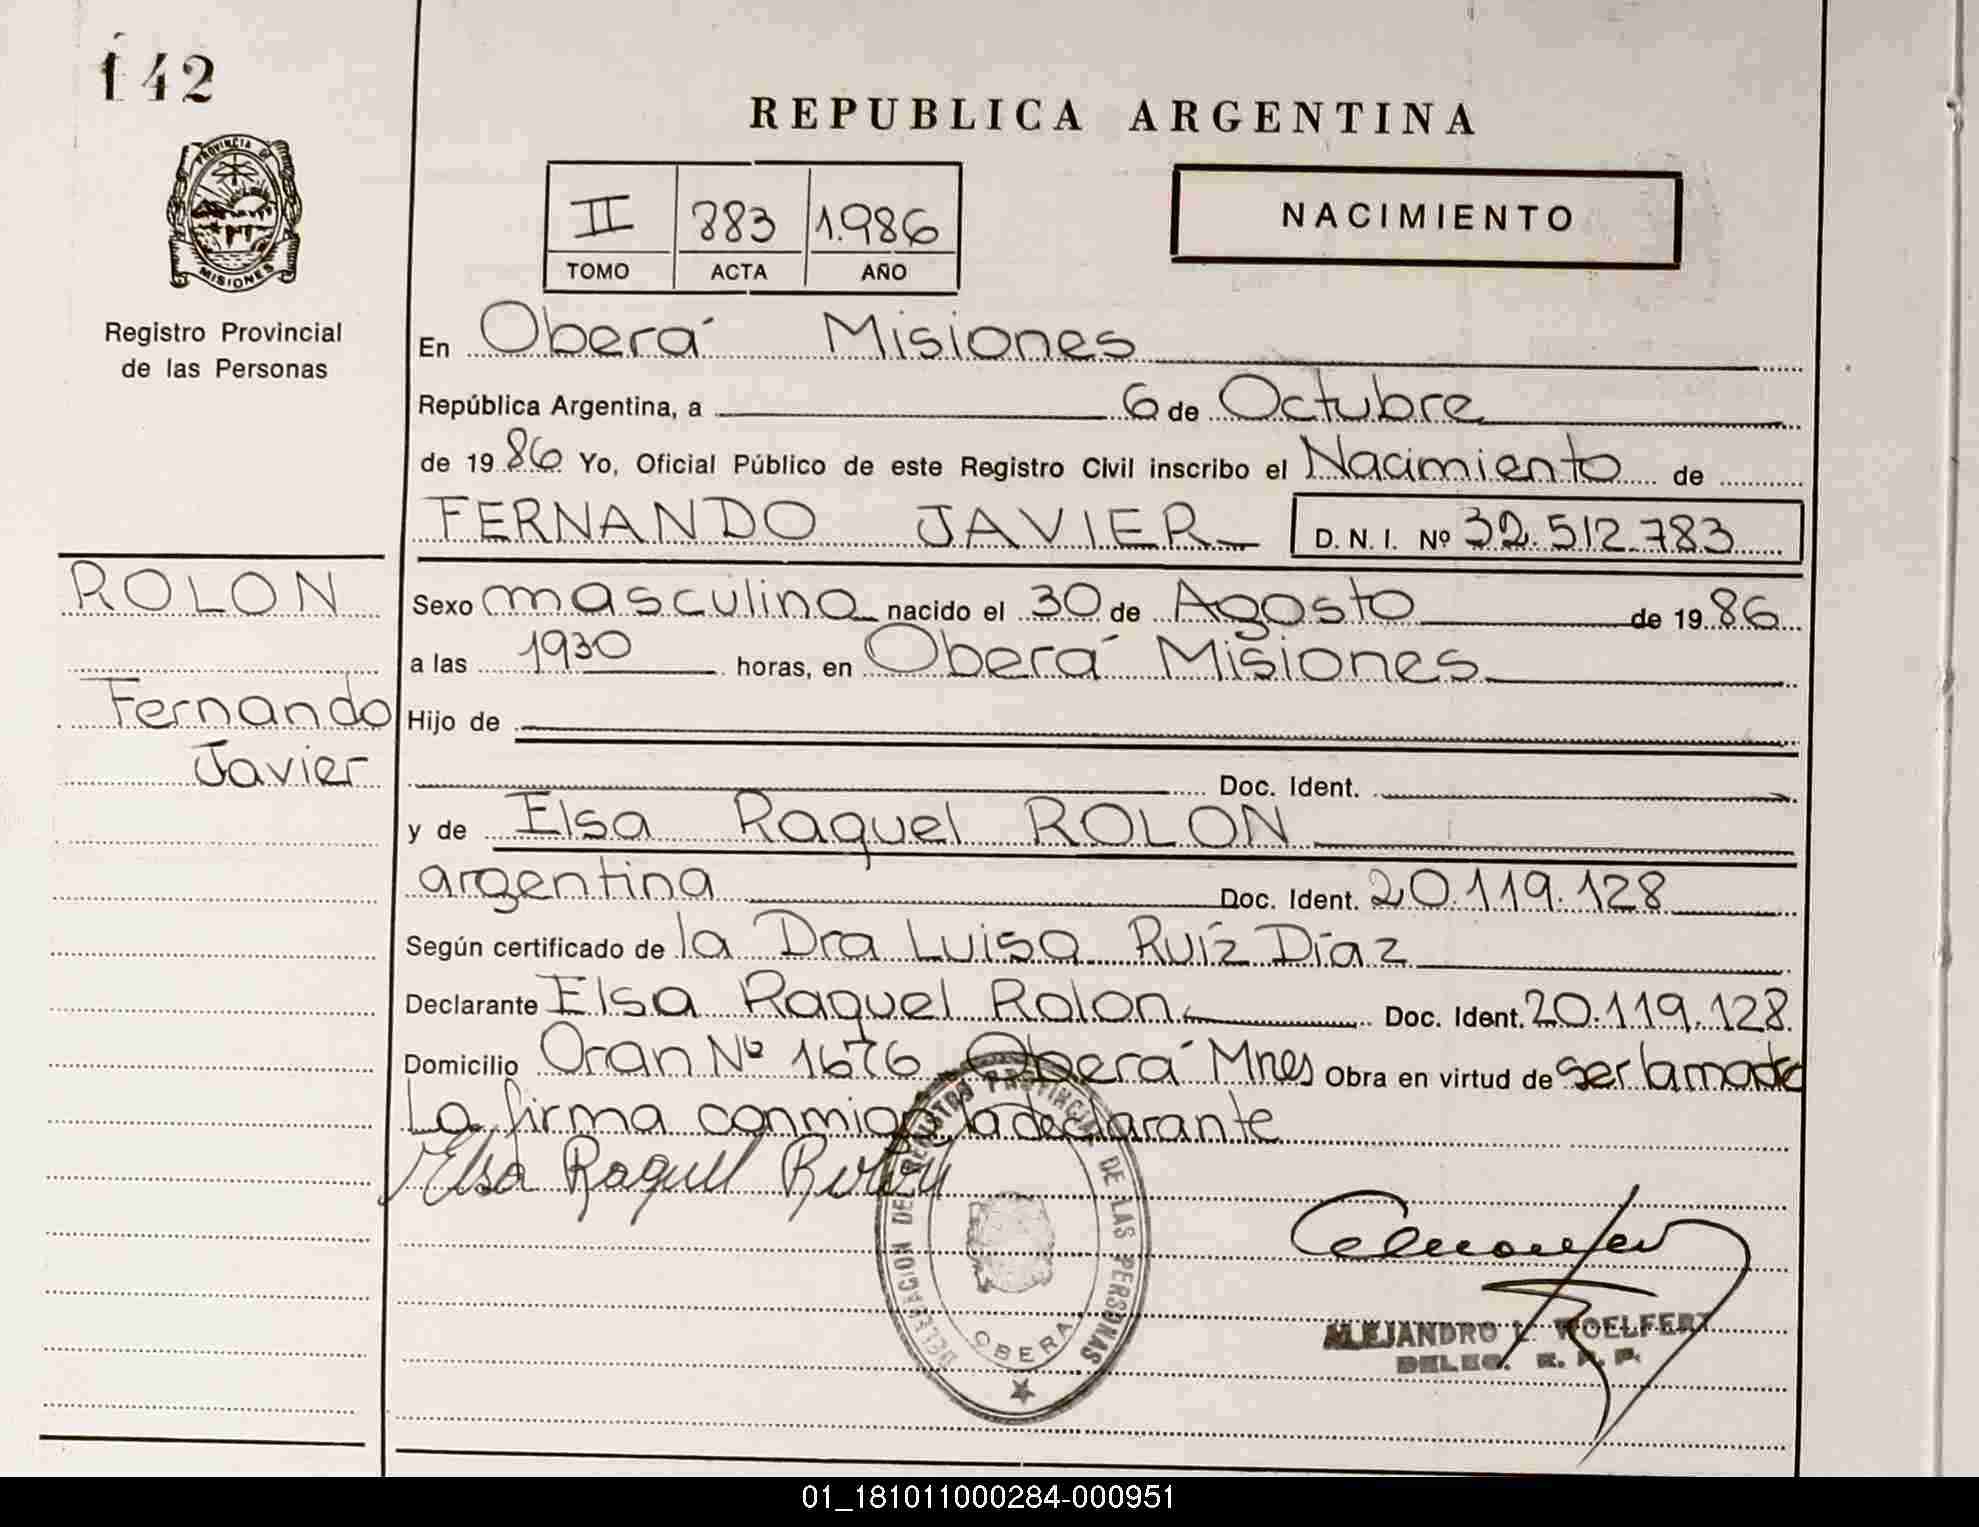 142
PROVINCIA DE
MISIONES
Registro Provincial
de las Personas
REPUBLICA ARGENTINA
II 883 1.986
TOMO ACTA AÑO
NACIMIENTO
En Oberá Misiones
República Argentina, a 6 de Octubre
de 1986 Yo, Oficial Público de este Registro Civil inscribo el Nacimiento de
FERNANDO JAVIER D.N.I. Nº 32.512.783
ROLON
Fernando
Javier
Sexo masculino nacido el 30 de Agosto de 1986
a las 1930 horas, en Oberá Misiones
Hijo de
Doc. Ident.
y de Elsa Raquel ROLON
argentina Doc. Ident. 20.119.128
Según certificado de la Dra Luisa Ruíz Díaz
Declarante Elsa Raquel Rolon Doc. Ident. 20.119.128
Domicilio Oran Nº 1676 Oberá Mnes Obra en virtud de ser la madre
La firma conmigo la declarante
Elsa Raquel Rolon
DELEGACION DE REGISTROS PROVINCIAL DE LAS PERSONAS
OBERA
ALEJANDRO L. WOELFERT
DELEG. R. P. P.
01_181011000284-000951